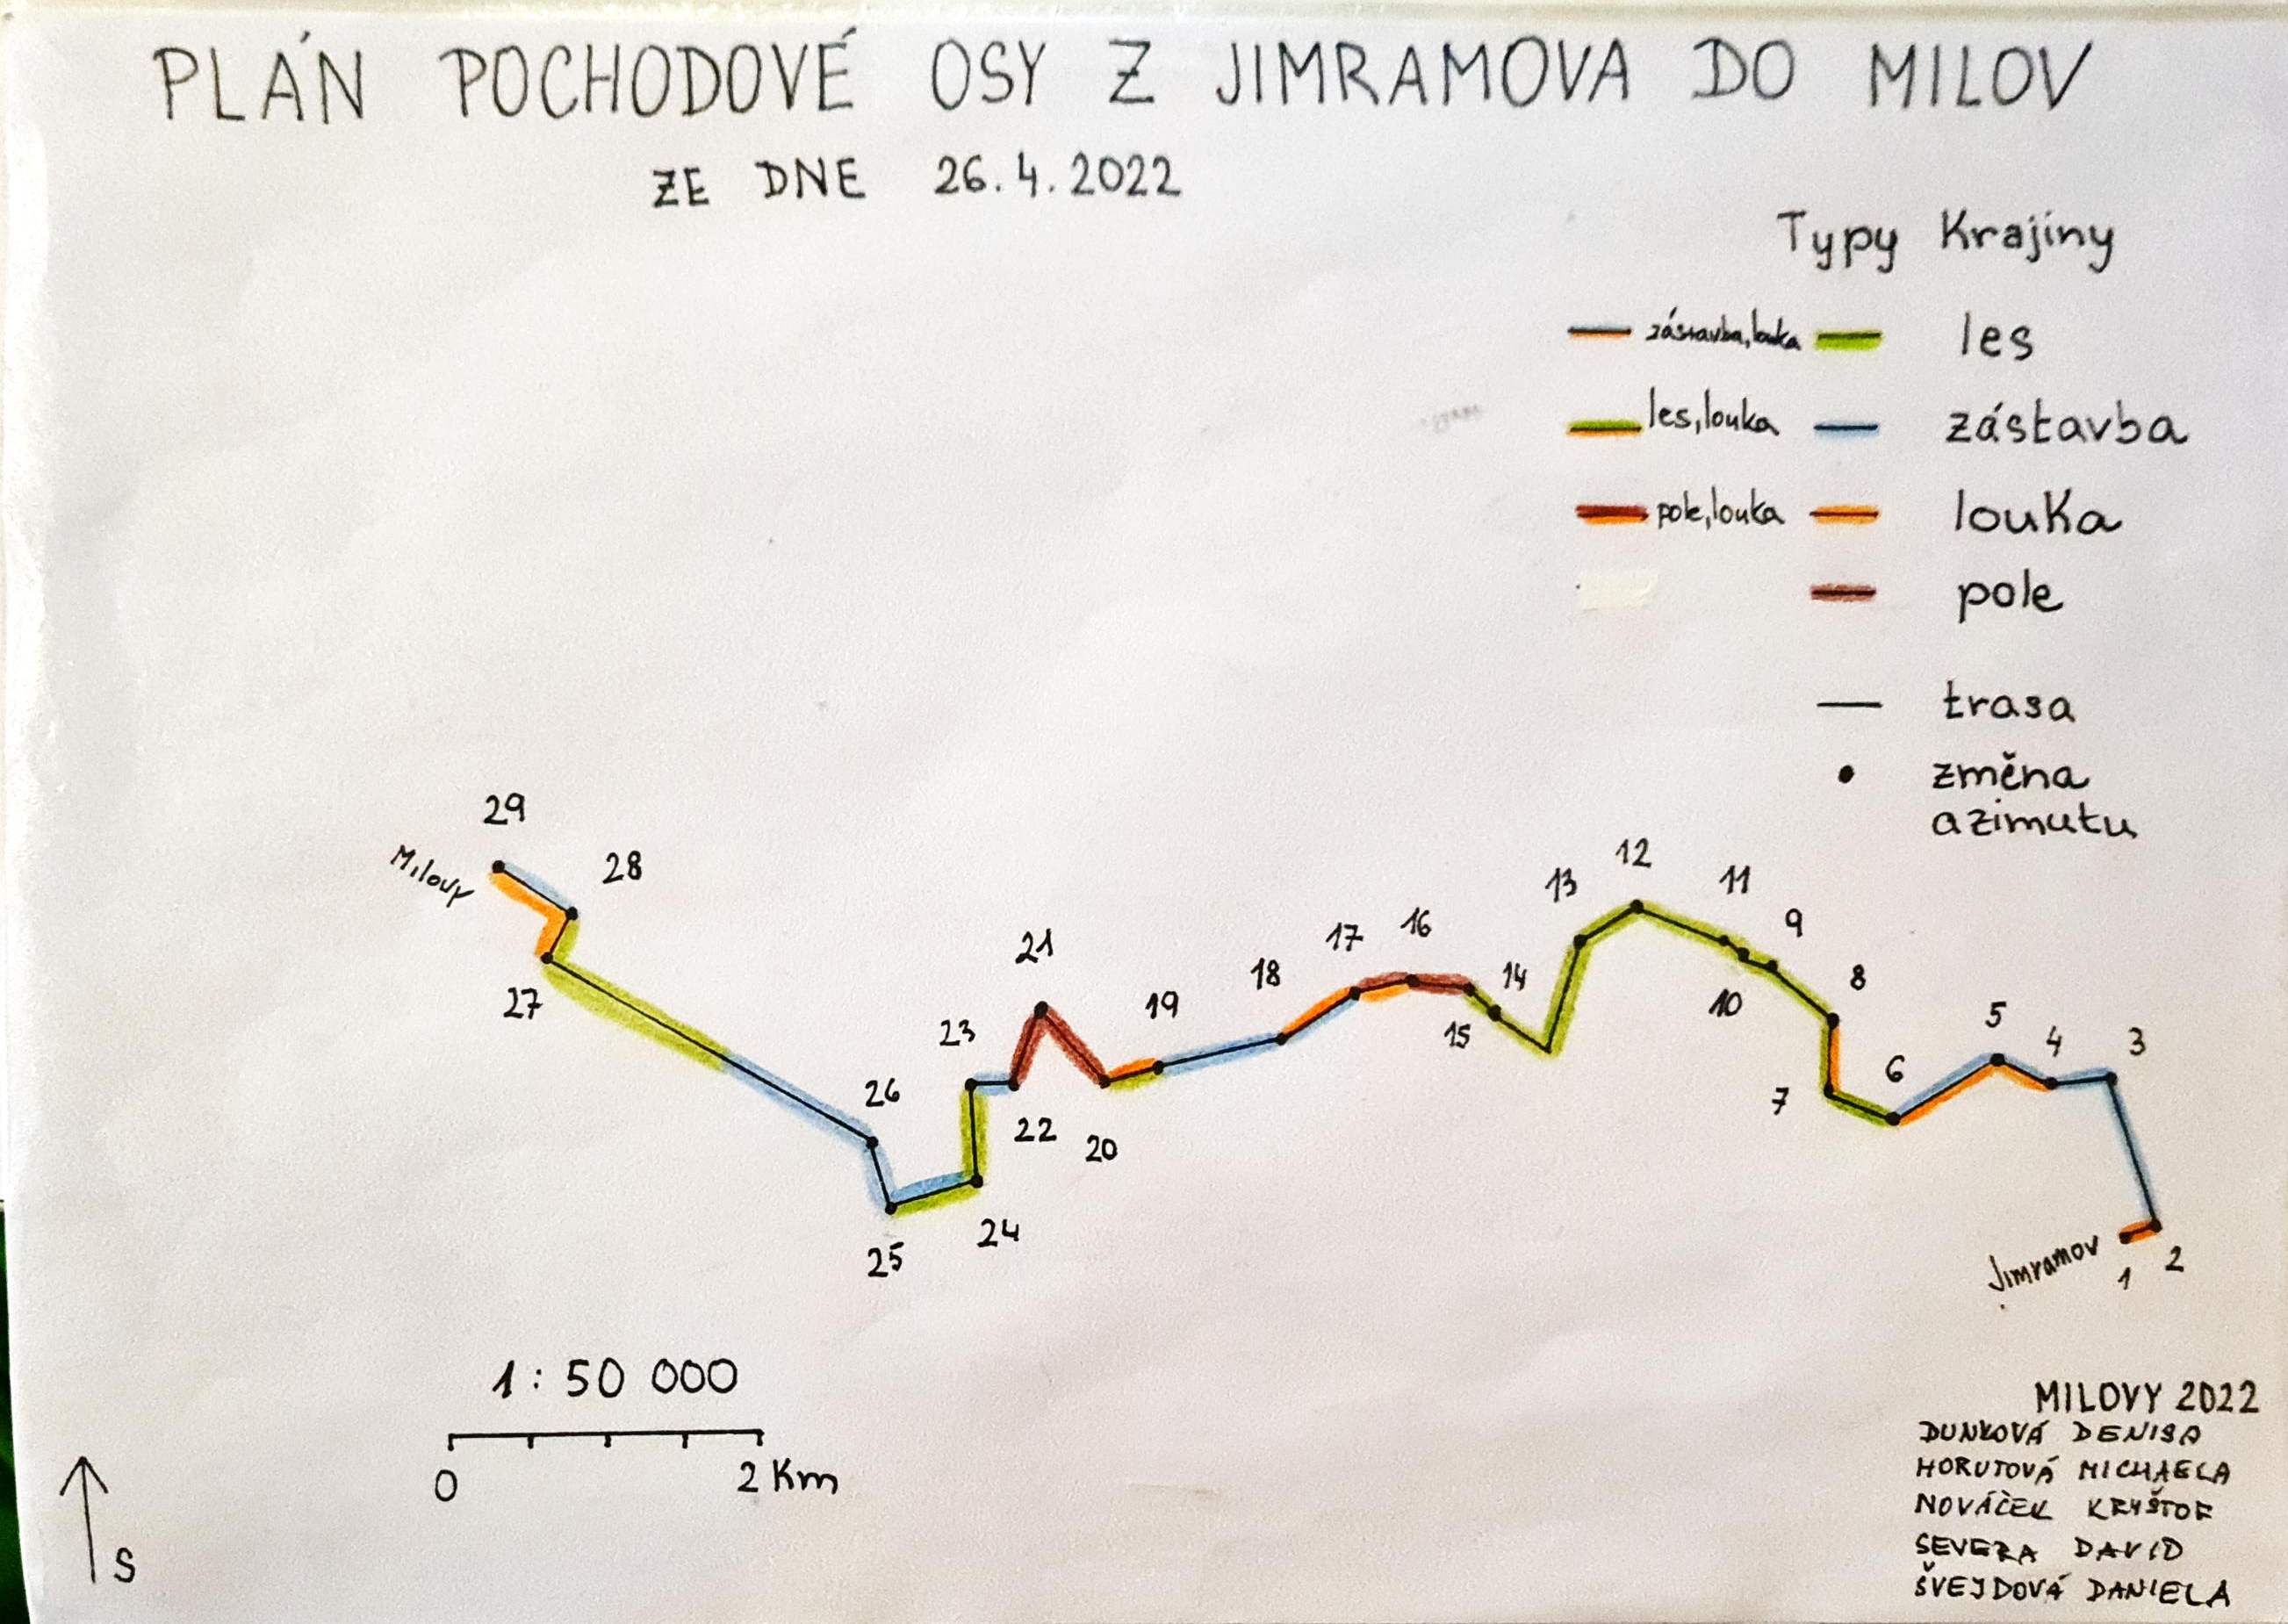 PLÁN POCHODOVÉ OSY Z JIMRAMOVA DO MILOV
ZE DNE 26.4.2022
Typy Krajiny
zástavba,louka
les
les,louka
zástavba
pole,louka
louka
pole
trasa
změna
azimutu
29
Milovy
28
27
26
25
24
23
22
21
20
19
18
17
16
15
14
13
12
11
10
9
8
7
6
5
4
3
2
1
Jimramov
1:50 000
0 2 Km
S
MILOVY 2022
DUNKOVÁ DENISA
HORUTOVÁ MICHAELA
NOVÁČEK KRYŠTOF
SEVERA DAVID
ŠVEJDOVÁ DANIELA